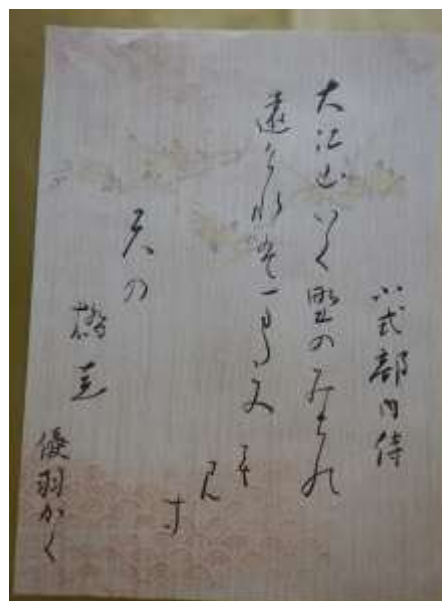 小式部内侍
大江山いく野のみちの
遠けれはまた文も
見
す
天の
橋立
優羽かく